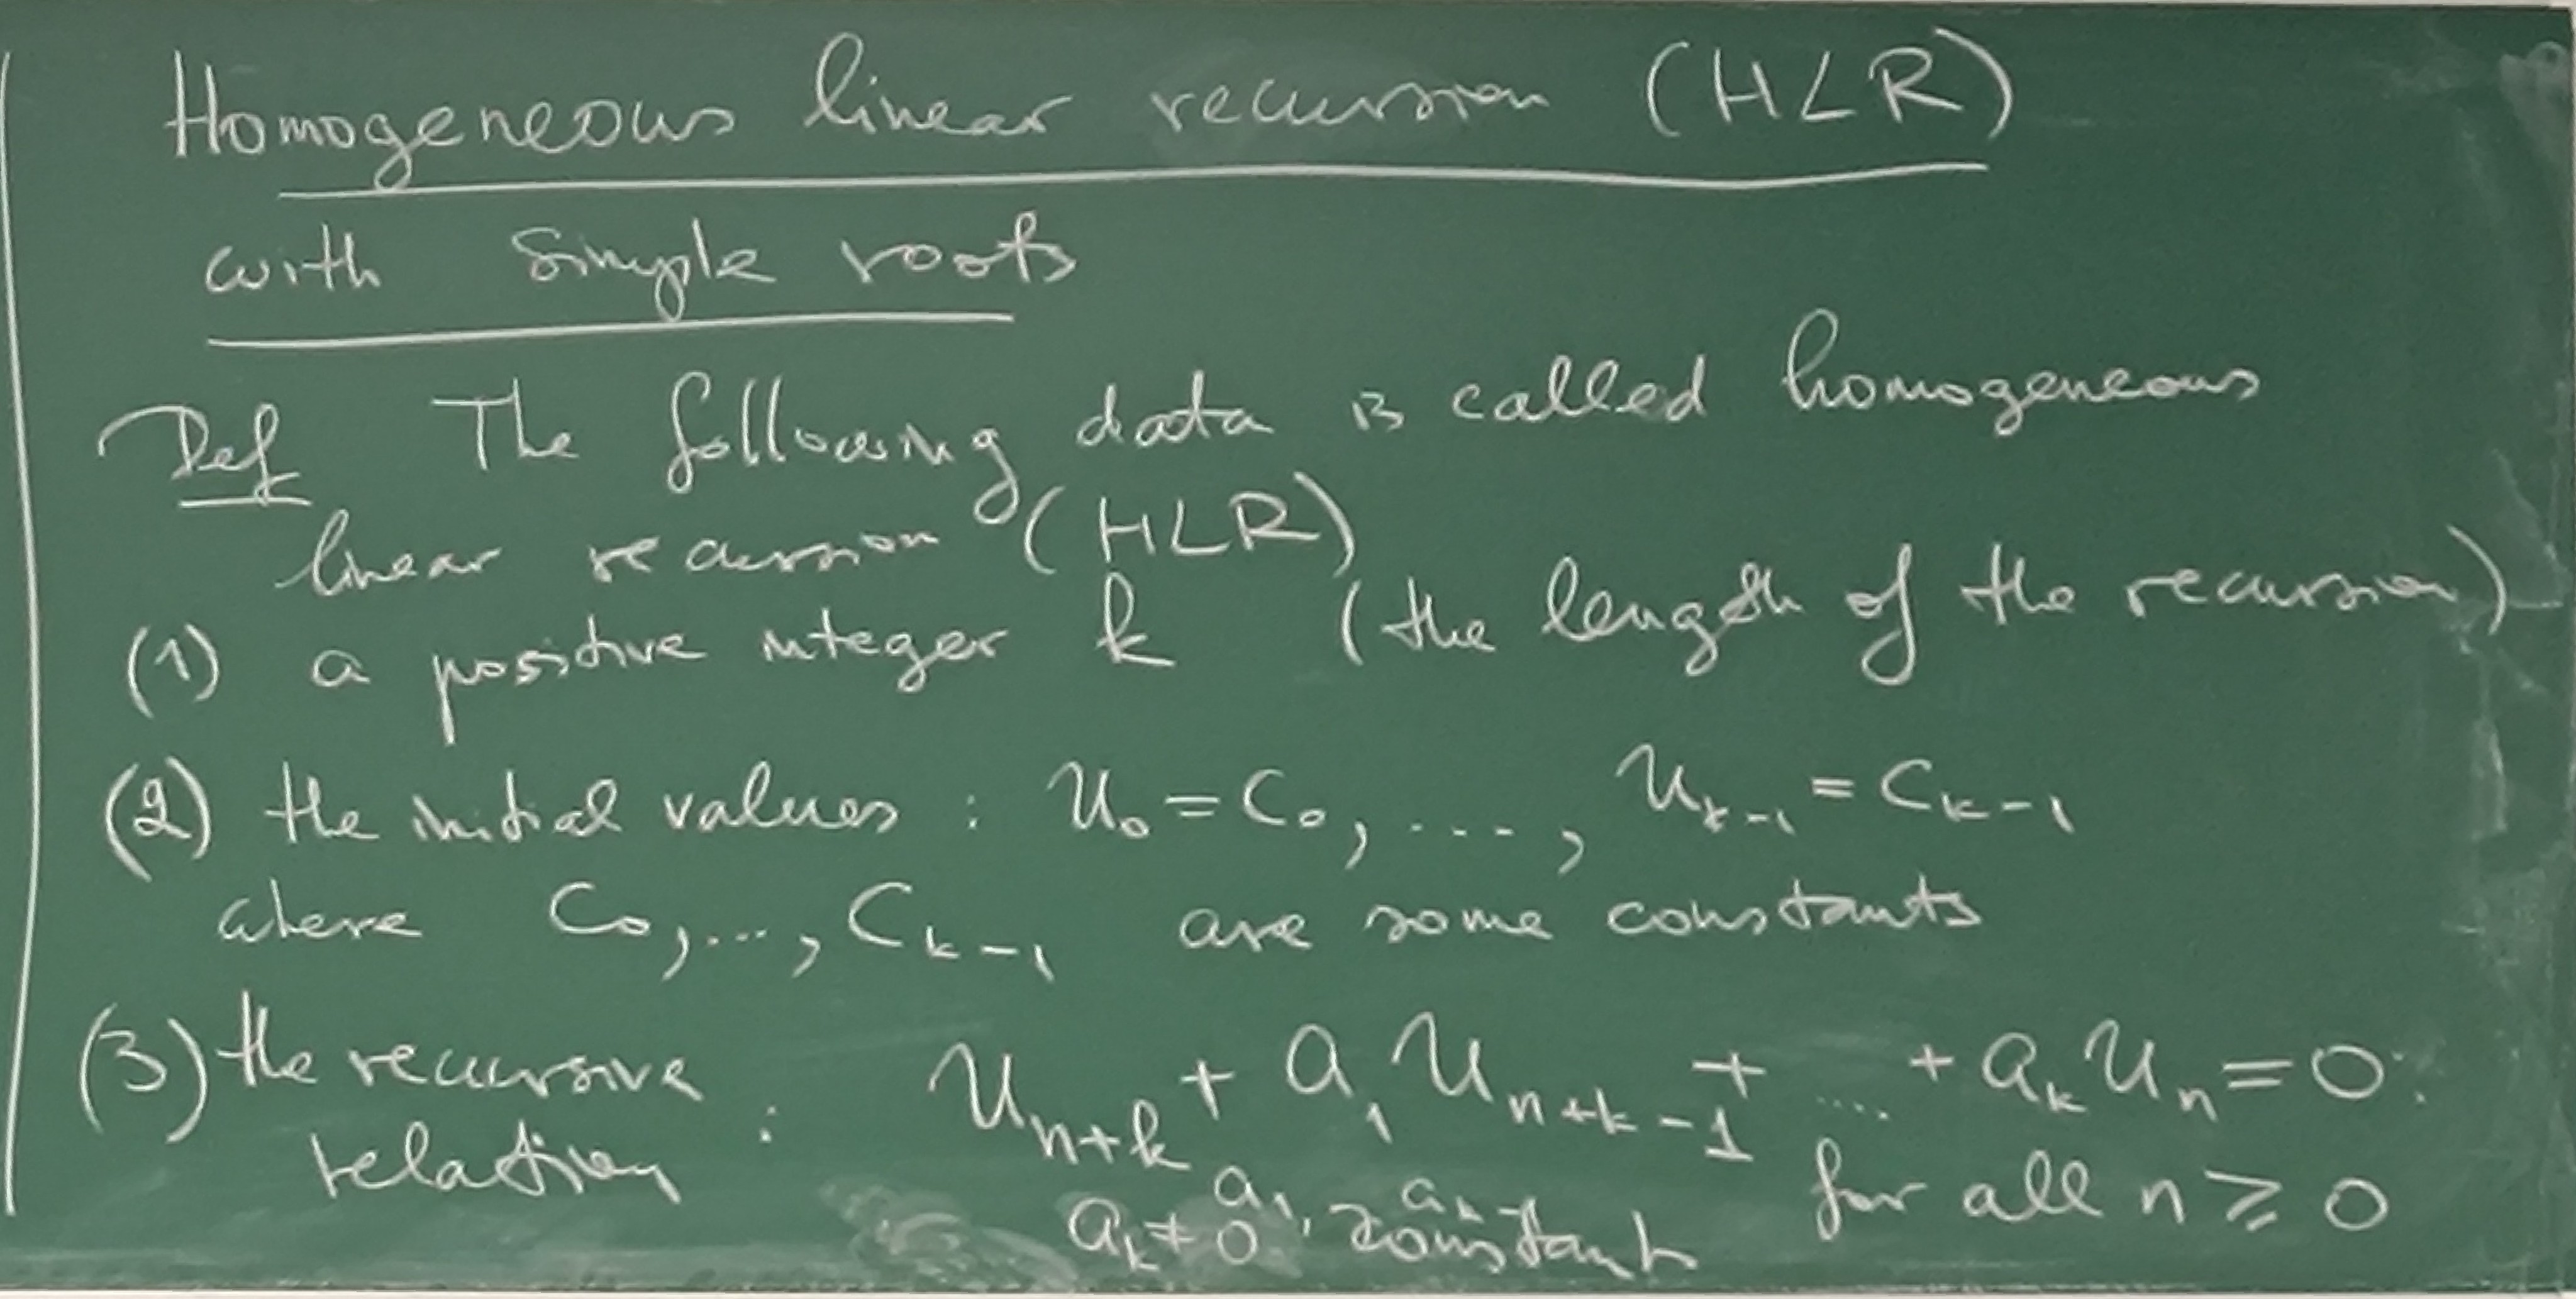 Homogeneous linear recursion (HLR)
with simple roots
Def The following data is called homogeneous
linear recursion (HLR)
(1) a positive integer k (the length of the recursion)
(2) the initial values : u₀ = c₀, ...., uₖ₋₁ = cₖ₋₁
where c₀, ..., cₖ₋₁ are some constants
(3) the recursive relation : uₙ₊ₖ + a₁ uₙ₊ₖ₋₁ + .... + aₖ uₙ = 0
for all n ≥ 0
a₁, aₖ
aₖ ≠ 0 constant